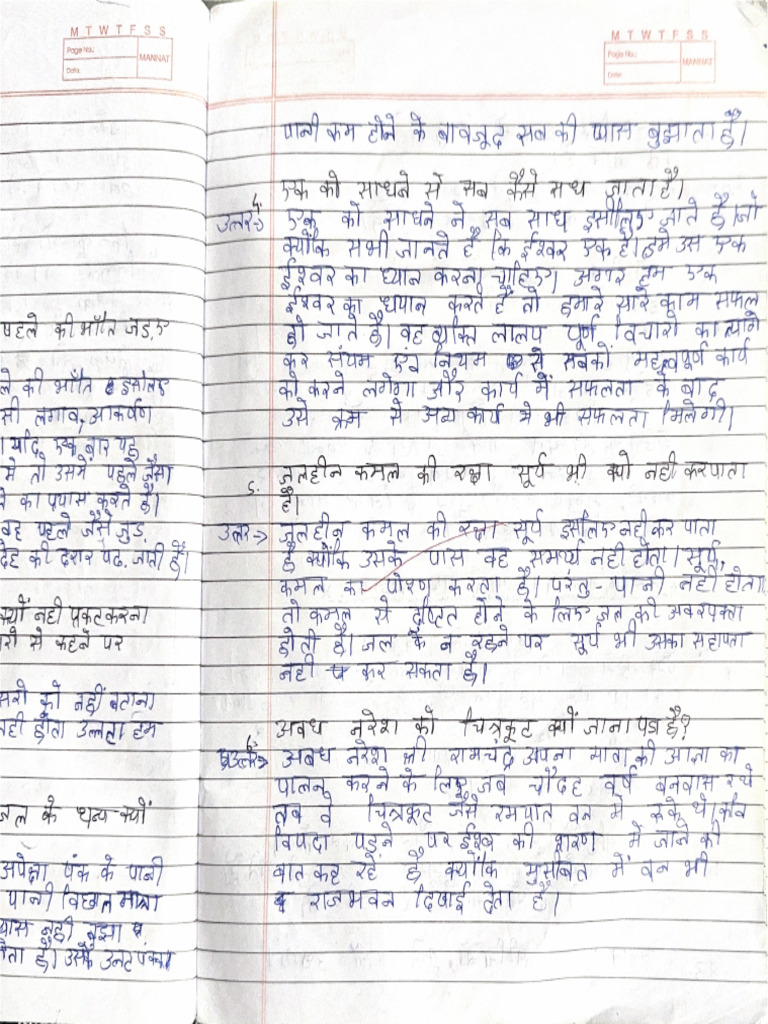 M T W T F S S
Page No.:
Date:
MANNAT
पहले की भाँति जड़, ए
ले की भाँति इसलिए
सी लगाव, आकर्षण
। यदि एक बार यह
मे तो उसमें पहले जैसा
ने का प्रयास करते है।
वह पहले जैसे जुड़,
देह की दरार पढ. जाती है।
क्यों नही प्रकट करना
रो से कहने पर
सरो को नहीं बताना
नही होता उल्लता हम
जल के धन्य क्यों
अपेक्षा पंक के पानी
पानी विशाल मात्रा
यास नही बुझा
ता है। उसके
M T W T F S S
Page No.:
Date:
MANNAT
पानी कम होने के बावजूद सब की प्यास बुझाता है।
4. एक को साधने से सब कैसे सध जाता है।
उत्तर-> एक को साधने ने सब साध इसीलिए जाते है।
क्योंकि सभी जानते है कि ईश्वर एक है। हमे उस एक
ईश्वर का ध्यान करना चाहिए। अगर हम एक
ईश्वर का ध्यान करते है तो हमारे सारे काम सफल
हो जाते है। वह व्यक्ति लालप पूर्ण विचारो का त्याग
कर संयम एव नियम से सबको महत्वपूर्ण कार्य
को करने लगेगा और कार्य में सफलता के बाद
उसे क्रम से अन्य कार्य मे भी सफलता मिलेगी।
5. जलहीन कमल की रक्षा सूर्य भी क्यो नही कर पाता
है।
उत्तर-> जलहीन कमल की रक्षा सूर्य इसलिए नही कर पाता
है क्योंकि उसके पास वह समर्थ्य नही होता। सूर्य,
कमल का पोशण करता है। परंतु - पानी नही होता
तो कमल से होने के लिए जल की अवश्यक्ता
होती है। जल के न रहने पर सूर्य भी उसका सहायता
नही कर सकता है।
अवध नरेश को चित्रकूट क्यों जाना पड़ा है?
6. उत्तर-> अवध नरेश श्री रामचंद्र अपना माता की आज्ञा का
पालन करने के लिए जब चौदह वर्ष बनवास रथे
तब वे चित्रकूट जैसे रमपात वन मे रुके थे।
विपदा पड़ने पर ईश्व की शरण में जाने की
वात कह रहे है क्योंकि मुसीबत में वन भी
राजभवन दिखाई देता है।